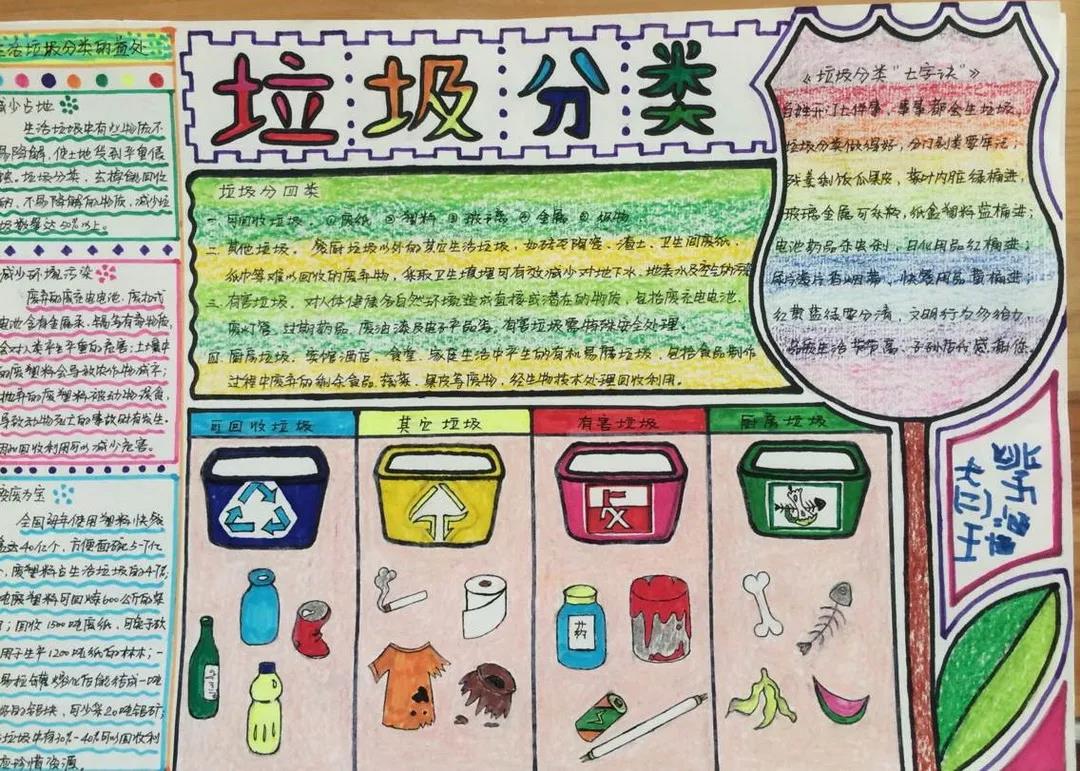 垃圾分类
生活垃圾分类的益处
减少占地
生活垃圾中有些物质不
易降解,使土地受到严重侵
蚀。垃圾分类,去掉能回收
的、不易降解的物质,减少垃
圾数量达50%以上。
减少环境污染
废弃的废充电电池、废扣式
电池含有金属汞、镉等有毒物质,
会对人类产生严重的危害;土壤中
的废塑料会导致农作物减产;
抛弃的废塑料被动物误食,
导致动物死亡的事故时有发生。
因此回收利用可以减少危害。
变废为宝
全国每年使用塑料快餐
盒达40亿个,方便面碗5-7亿
废塑料占生活垃圾的4-7%
吨废塑料可回炼600公斤的柴
;回收1500吨废纸,可免于砍
用于生产1200吨纸的林木;一
易拉罐熔化后能结成一吨
的铝块,可少采20吨铝矿;
垃圾中有30%-40%可以回收利
应珍惜资源。
垃圾分四类
一.可回收垃圾 ①废纸 ②塑料 ③玻璃 ④金属 ⑤织物
二.其他垃圾,餐厨垃圾以外的其它生活垃圾,如砖瓦陶瓷、渣土、卫生间废纸,
纸巾等难以回收的废弃物,采取卫生填埋可有效减少对地下水,地表水及空气的污染
三.有害垃圾,对人体健康或自然环境造成直接或潜在的物质,包括废充电电池、
废灯管、过期药品、废油漆及电子产品等,有害垃圾需特殊安全处理。
四.厨房垃圾、菜馆酒店、食堂、家庭生活中产生的有机易腐垃圾,包括食品制作
过程中废弃的剩余食品、蔬菜、果皮等废物,经生物技术处理回收利用。
《垃圾分类“七字诀”》
百姓开门七件事,事事都会生垃圾,
垃圾分类做得好,分门别类要牢记;
残羹剩饭瓜果皮,菜叶内脏绿桶进,
玻璃金属可乐瓶,纸盒塑料蓝桶进;
电池药品杀虫剂,日化用品红桶进;
尿片渣片香烟蒂,快餐用品黄桶进;
红黄蓝绿要分清,文明行为多给力,
低废生活节节高,子孙后代感谢您。
可回收垃圾
其它垃圾
有害垃圾
厨房垃圾
药